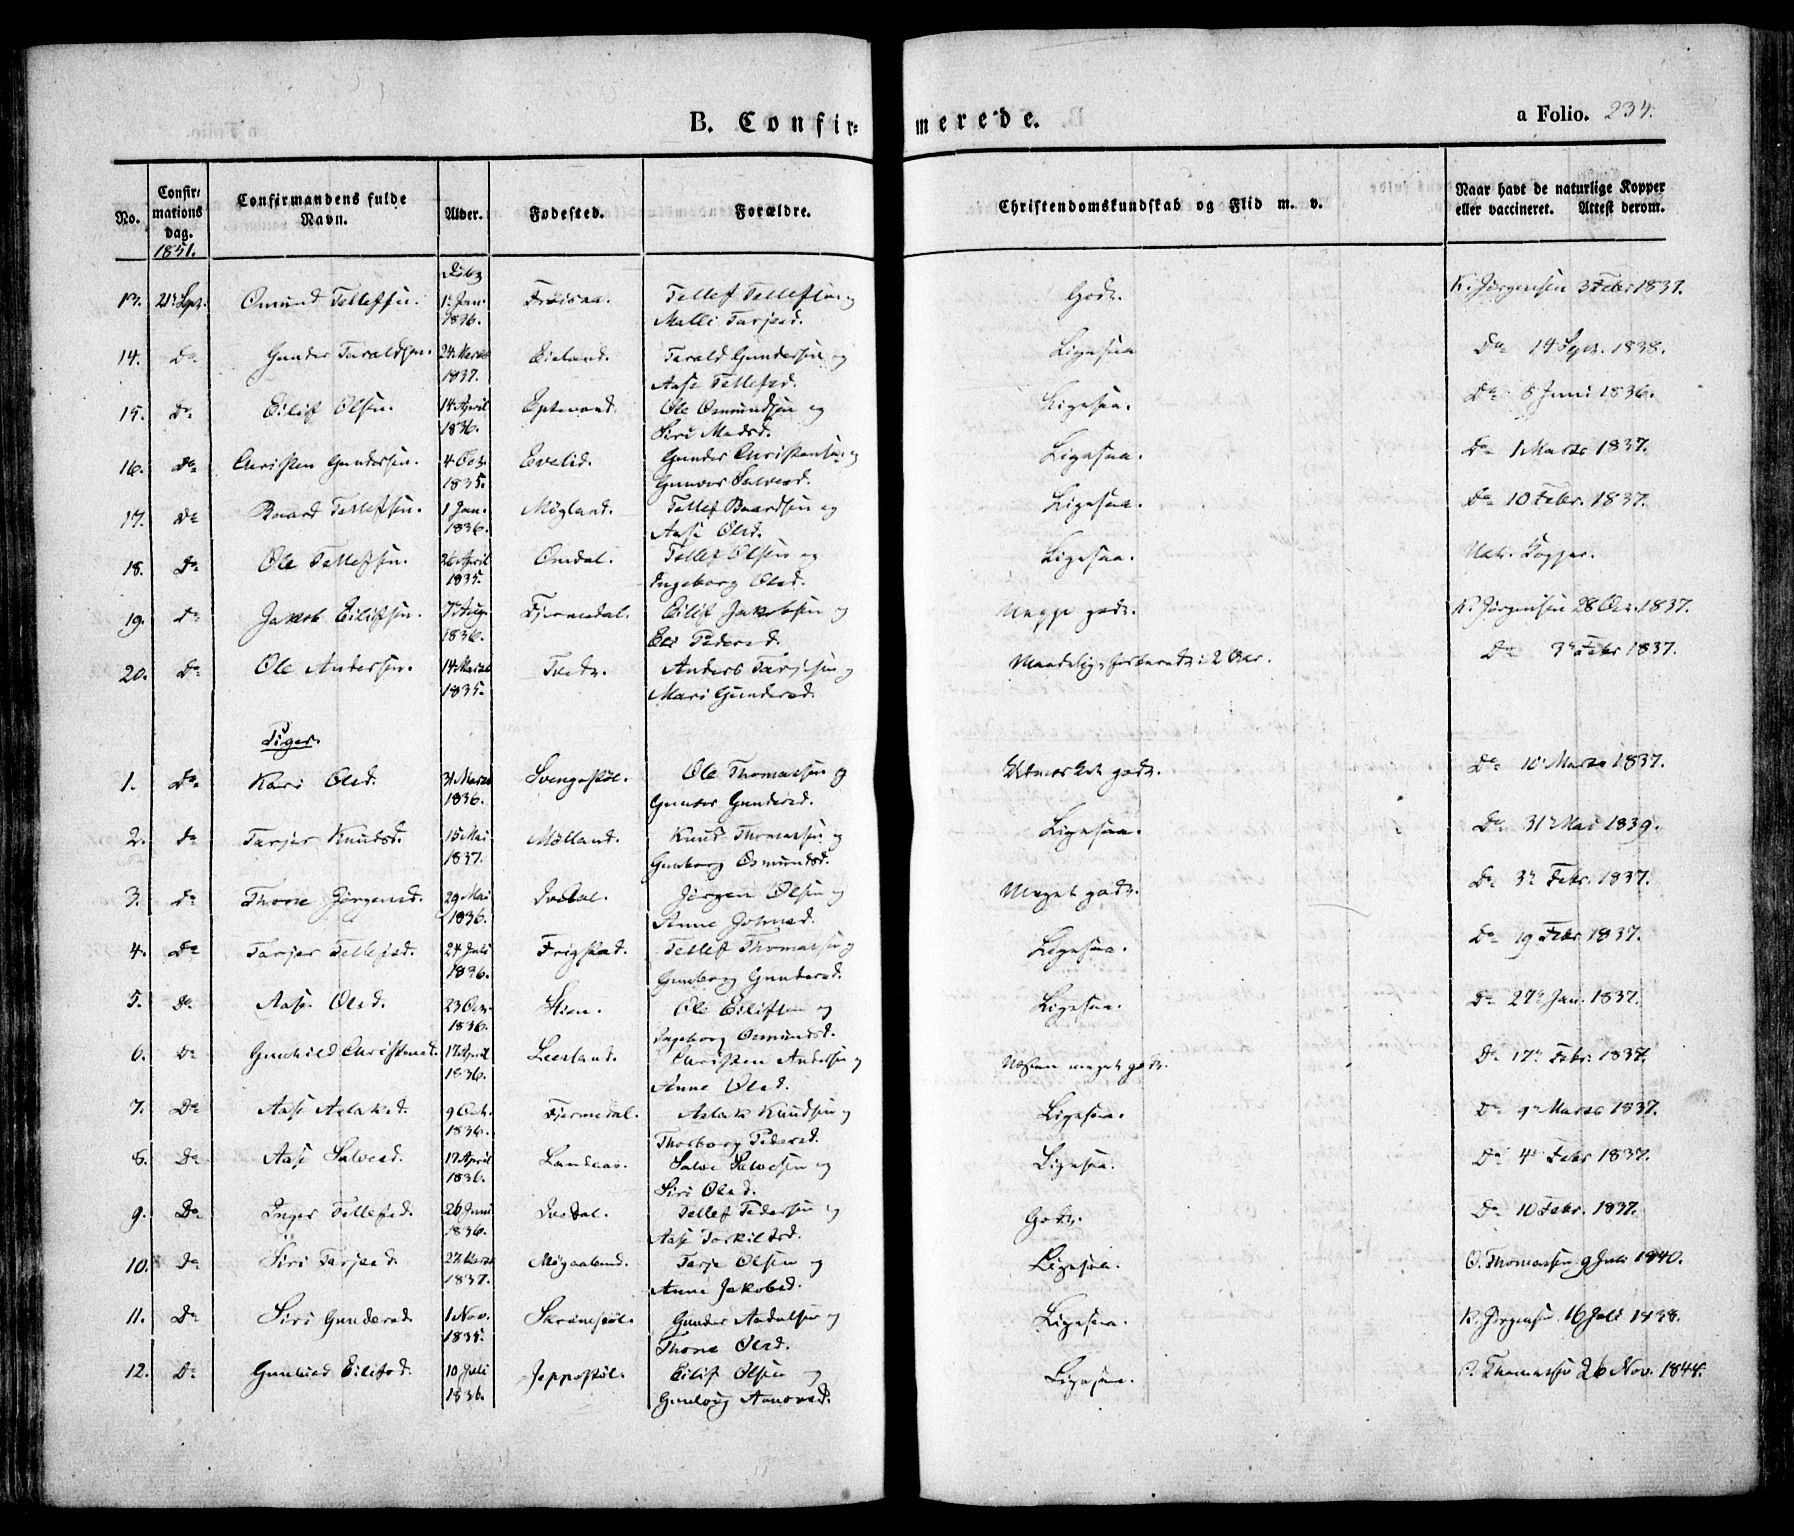 B. Confir= merede.
a Folio. 234.
No. Confir= mations dag. 1851. Confirmandens fulde Navn. Alder. Fødested. Forældre. Christendomskundskab og Flid m. v. Naar havt de naturlige Kopper eller vaccineret. Attest derom.
13. 21. Sept. Omund Tellefsen. 1. Jan. Frøisaa. Tellef Tellefsen og Godt. K. Jørgensen 3 Febr 1837.
1836. Malli Tarjesd.
14. Do Gunder Taraldsen. 24. Marts Eieland. Tarald Gundersen og Ligesaa Do 14 Sept. 1838.
1837. Aase Tellefsd.
15. Do Eilif Olsen. 14 April Eptevand. Ole Osmundsen og Ligesaa. Do 8 Juni 1836.
1836. Siri Madsd.
16. Do Christen Gundersen. 4 Oct. Evelid. Gunder Christensen og Ligesaa. Do 1 Marts 1837.
1835. Gunvor Salvesd.
17. Do Baard Tellefsen. 1 Jan. Møgland. Tellef Baardsen og Ligesaa. Do 10 Febr. 1837.
1836. Aase Olsd.
18. Do Ole Tellefsen. 26 April Omdal. Tellef Olsen og Ligesaa. Nat. Kopper.
1835. Ingeborg Olsd.
19. Do Jakob Eilifsen. 7 Aug. Fjermedal. Eilif Jakobsen og Neppe godt. K. Jørgensen 28 Oct. 1837.
1836. Eli Pedersd.
20. Do Ole Andersen. 14 Marts Tvedt. Anders Tarjesen og Maadelig, forberedt i 2 Aar. Do 3 Febr 1837.
1835. Mari Gundersd.
Piger.
1. Do Kari Olsd. 31 Marts Svengestøl. Ole Thomassen og Udmærket godt. Do 10 Marts 1837.
1836. Gunvor Gundersd.
2. Do Tarjer Knudsd. 15 Mai Mølland. Knud Thomassen og Ligesaa. Do 31 Mai 1839.
1837. Gunborg Osmundsd.
3. Do Thone Jørgensd. 29 Mai Ivedal. Jørgen Olsen og Meget godt. Do 3 Febr. 1837.
1836. Anne Johnsd.
4. Do Tarjer Tellefsd. 24 Juli Frigstad. Tellef Thomassen og Ligesaa. Do 19 Febr 1837.
1836. Gunborg Gundersd.
5. Do Aase Olsd. 23 Oct. Stien. Ole Eilifsen og Ligesaa. Do 27 Jan. 1837.
1836. Ingeborg Osmundsd.
6. Do Gunhild Christensd. 17 April Leesland. Christen Andersen og Næsten meget godt. Do 17 Febr. 1837.
1836. Anne Olsd.
7. Do Aase Aslaksd. 9 Oct. Fjermedal. Aslak Knudsen og Ligesaa. Do 9 Marts 1837.
1836. Thorborg Pedersd.
8. Do Aase Salvesd. 17 April Landaas. Salve Salvesen og Ligesaa. Do 4 Febr 1837.
1836. Siri Olsd.
9. Do Inger Tellefsd. 26 Juni Ivedal. Tellef Pedersen og Godt. Do 10 Febr. 1837.
1836. Aase Torkildsd.
10. Do Siri Tarjesd. 27 Marts Møgaalund. Tarje Olsen og Ligesaa. O. Thomassen 9 Juli 1840.
1837. Anne Jakobsd.
11. Do Siri Gundersd. 1 Nov. Skrømstøl. Gunder Aadalsen og Ligesaa. K. Jørgensen 16 Juli 1838.
1835. Thone Olsd.
12. Do Gunhild Eilifsd. 10 Juli Jeppestøl. Eilif Olsen og Ligesaa. O. Thomassen 26 Nov. 1844.
1836. Gunlaug Aanonsd.